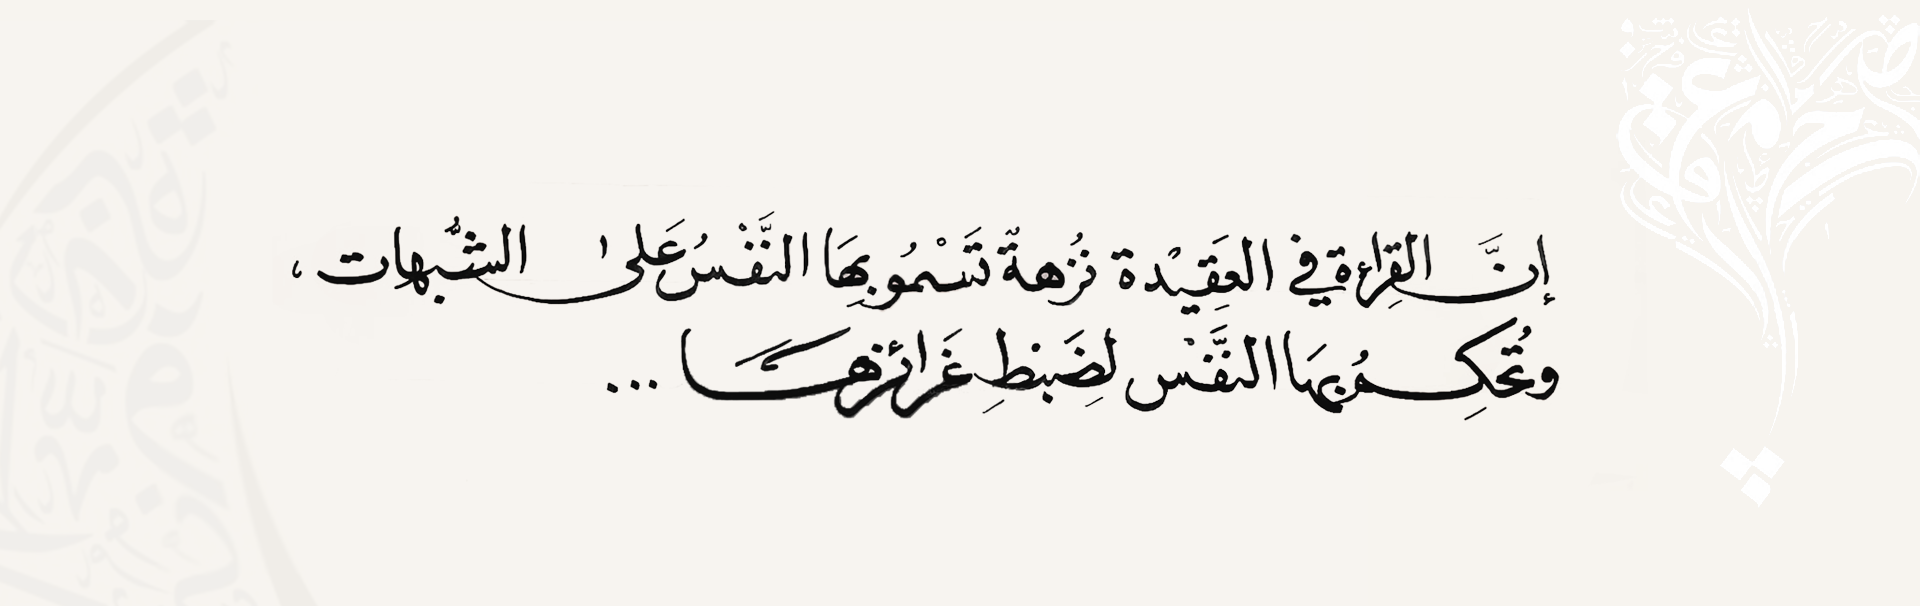 إنَّ القِرَاءة في العَقِيْدة نُزهةٌ تَسْمُو بِهَا النَّفْسُ عَلىٰ الشُّبهات ،
وتُحَكِمُ بِهَا النَّفْس لضَبْطِ غَرائزهَا ...